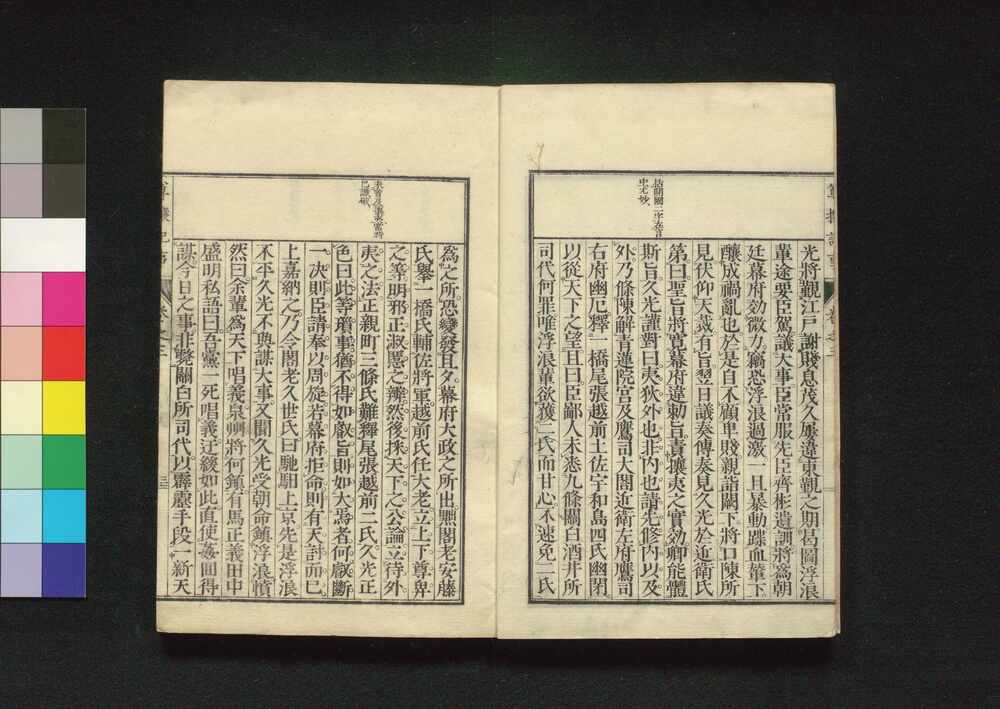 光將覲江戸謝賤息茂久屢違東覲之期曷圖浮浪
輩途要臣駕議大事臣常服先臣齊彬遺訓將爲朝
廷幕府効微力竊恐浮浪過激一旦暴動蹀血輦下
釀成禍亂也於是自不顧卑賤親詣闕下將口陳所
見伏仰天裁有旨翌日議奏傳奏見久光於近衛氏
第曰聖旨將寛幕府違勅旨責攘夷之實効卿能體
斯旨久光謹對曰夷狄外也非内也請先修内以及
外乃條陳解青蓮院宮及鷹司大閤近衛左府鷹司
右府幽戹釋一橋尾張越前土佐宇和島四氏幽閉
以從天下之望且曰臣鄙人未悉九條關白酒井所
司代何罪唯浮浪輩欲獲二氏而甘心不速免二氏
爲之所恐變發且夕幕府大政之所出黜閣老安藤
氏擧一橋氏輔佐將軍越前氏任大老立上下尊卑
之等明邪正淑慝之辨然後採天下之公論立待外
夷之法正親町三條氏難釋尾張越前二氏久光正
色曰此等瑣事猶不得如叡旨則如大焉者何叡斷
一決則臣請奉以周旋若幕府拒命則有天討而已
上嘉納之乃令閣老久世氏曰馳馹上京先是浮浪
不平久光不與謀大事又聞久光受朝命鎮浮浪憤
然曰余輩爲天下唱義泉州將何鎮有馬正義田中
盛明私語曰吾黨一死唱義迂緩如此直使姦回得
謀今日之事非斃關白所司代以霹靂手段一新天